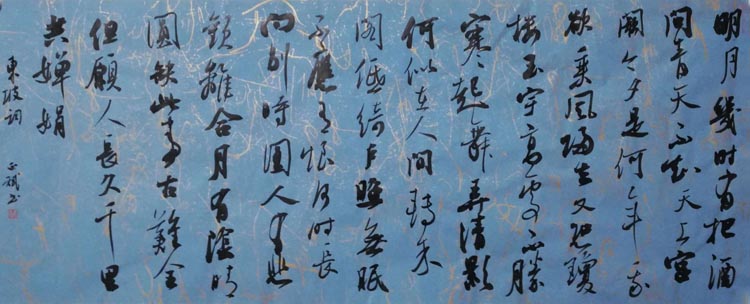 明月幾時有把酒
問青天不知天上宮
闕今夕是何年我
欲乘風歸去又恐瓊
樓玉宇高處不勝
寒起舞弄清影
何似在人間轉朱
閣低綺户照無眠
不應有恨何时長
向别時圓人有悲
歡離合月有陰晴
圓缺此事古難全
但願人長久千里
共嬋娟
東坡詞